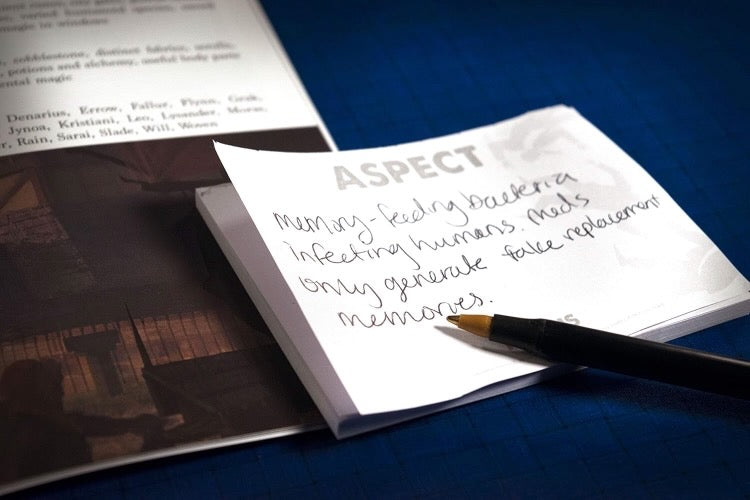 magic to windows
cobblestone, distinct fabrics,
potions and alchemy, useful body parts
ental magic
Denarius, Errow, Fallor, Flynn, Grak,
Jynoa, Kristiani, Leo, Lysander, Moran,
r, Rain, Sarai, Slade, Will, Wosen
ASPECT
Memory-feeding bacteria
infecting humans. Meds
only generate fake replacement
memories.